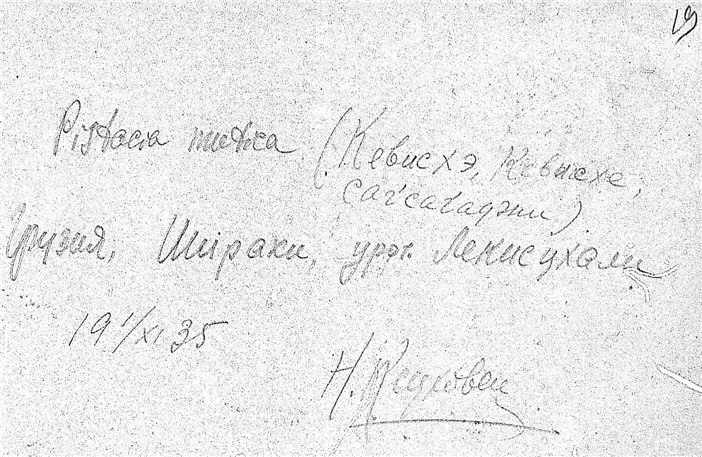 19
Pistacia mutica (Кевисхэ, Кевисхе,
сагсагадэни)
Грузия, Шираки, ур. Лекисцхали
19 1/XI 35
Н.